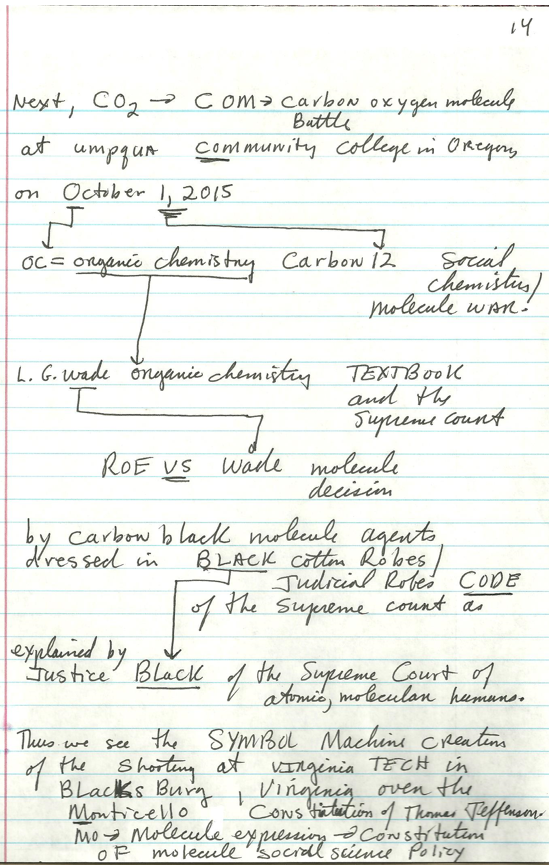 14
Next, CO2 → COM → carbon oxygen molecule
Battle
at umpqua community college in Oregon,
on October 1, 2015
OC = organic chemistry Carbon 12 Social
chemistry/
molecule WAR.
L. G. Wade organic chemistry TEXTBOOK
and the
Supreme Court
ROE VS Wade molecule
decision
by carbon black molecule agents
dressed in BLACK cotton Robes/
Judicial Robes CODE
of the Supreme Court as
explained by
Justice BLACK of the Supreme Court of
atomic, molecular humans.
Thus we see the SYMBOL Machine Creation
of the Shooting at VIRGINIA TECH in
Blacks Burg, Virginia over the
Monticello Constitution of Thomas Jefferson.
MO → Molecule expression → Constitution
OF molecule social science Policy